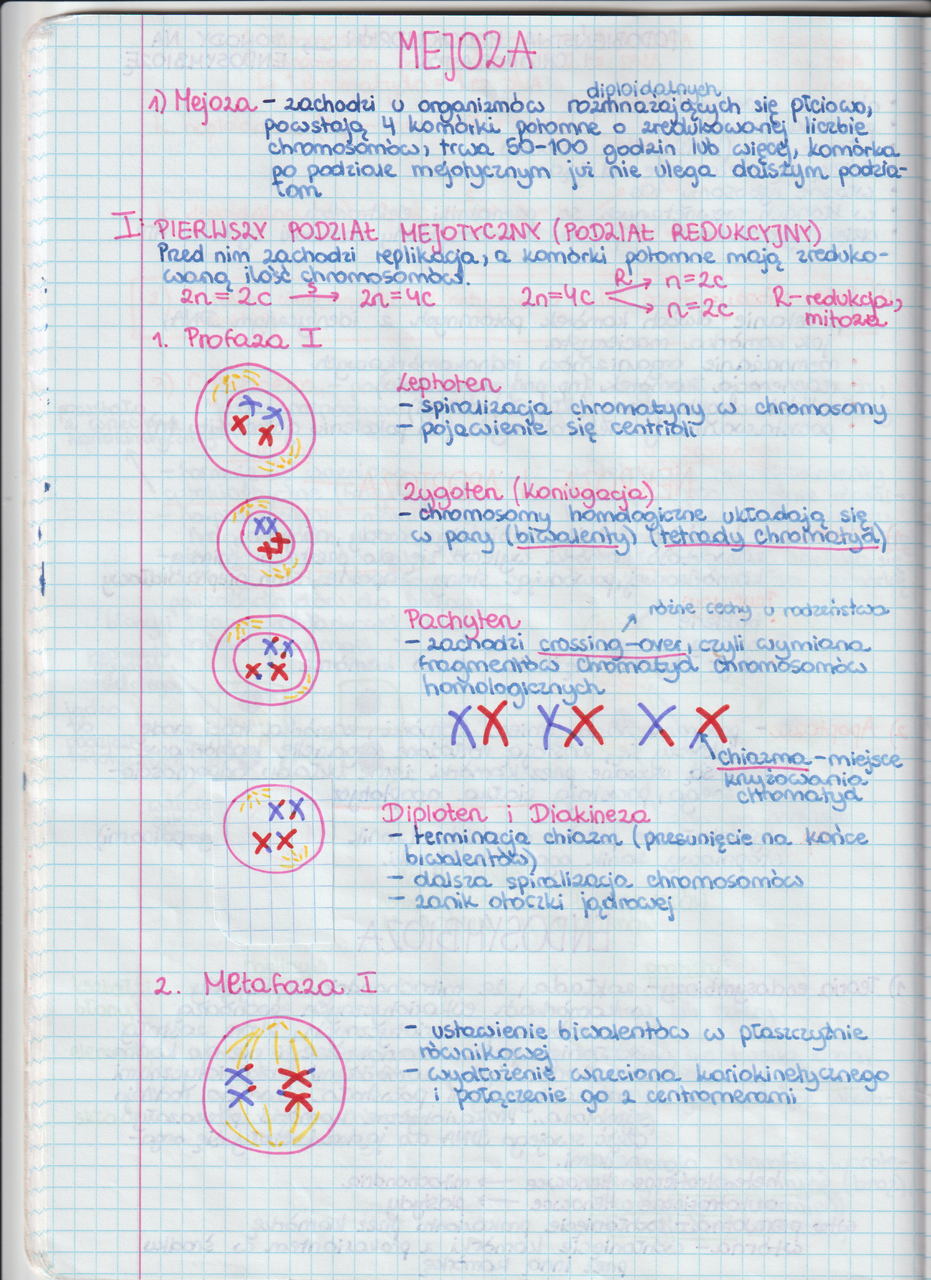 MEJOZA
diploidalnych
1) Mejoza - zachodzi u organizmów rozmnażających się płciowo,
powstają 4 komórki potomne o zredukowanej liczbie
chromosomów, trwa 50-100 godzin lub więcej, komórka
po podziale mejotycznym już nie ulega dalszym podzia-
łom
I PIERWSZY PODZIAŁ MEJOTYCZNY (PODZIAŁ REDUKCYJNY)
Przed nim zachodzi replikacja, a komórki potomne mają zreduko-
waną ilość chromosomów.
2n=2c S→ 2n=4c 2n=4c R→ n=2c
→ n=2c
R-redukcja,
mitoza
1. Profaza I
Leptoten
- spiralizacja chromatyny w chromosomy
- pojawienie się centrioli
Zygoten (koniugacja)
- chromosomy homologiczne układają się
w pary (biwalenty) (tetrady chromatyd)
różne cechy u rodzeństwa
Pachyten
- zachodzi crossing-over, czyli wymiana
fragmentów chromatyd chromosomów
homologicznych
chiazma - miejsce
krzyżowania
chromatyd
Diploten i Diakineza
- terminacja chiazm (przesunięcie na końce
biwalentów)
- dalsza spiralizacja chromosomów
- zanik otoczki jądrowej
2. Metafaza I
- ustawienie biwalentów w płaszczyźnie
równikowej
- wydłużenie wrzeciona kariokinetycznego
i połączenie go z centromerami